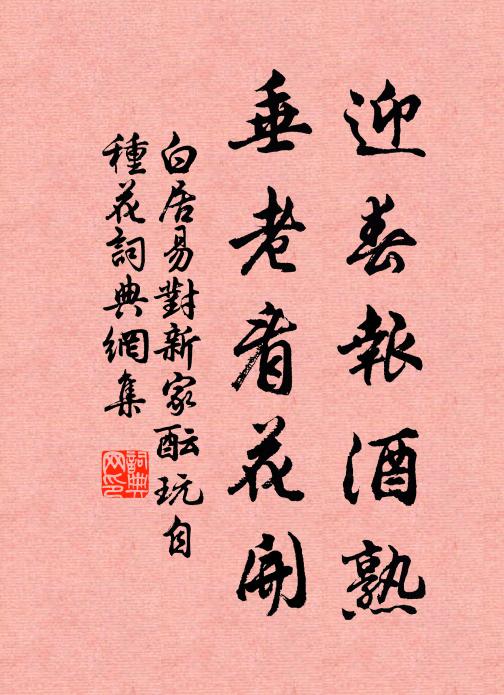 迎春報酒熟
垂老看花開
白居易對新家醞玩自
種花詞典網集
詞典网印